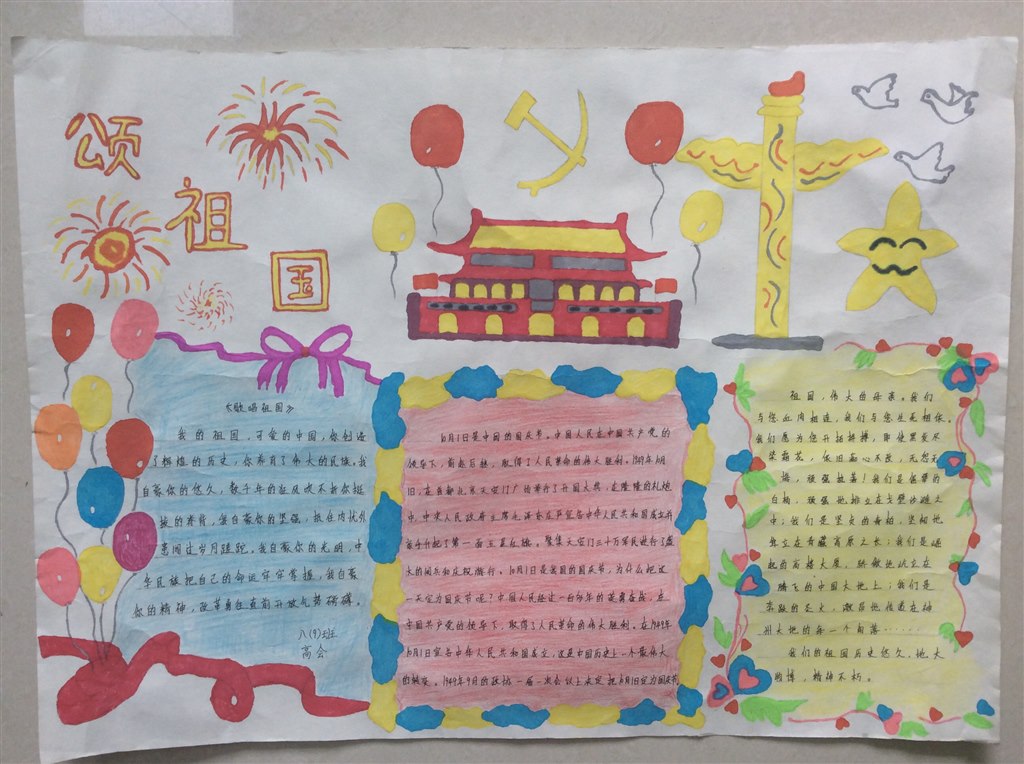 颂
祖
国
《歌唱祖国》
我的祖国，可爱的中国，你创造
了辉煌的历史，你养育了伟大的民族。我
自豪你的悠久，数千年的狂风吹不折你挺
拔的脊背，我自豪你的坚强，抵住内忧外
患闯过岁月蹉跎。我自豪你的光明，中
华民族把自己的命运牢牢掌握，我自豪
你的精神，改革勇往直前开放气势磅礴。
八(9)班
高会
10月1日是中国的国庆节。中国人民在中国共产党的
领导下，前赴后继，取得了人民革命的伟大胜利。1949年10月
1日，在首都北京天安门广场举行了开国大典，在隆隆的礼炮
中，中央人民政府主席毛泽东庄严宣告中华人民共和国成立并
亲手升起了第一面五星红旗。聚集天安门三十万军民进行了盛
大的阅兵和庆祝游行。10月1日是我国的国庆节，为什么把这
一天定为国庆节呢？中国人民经过一百多年的英勇奋战，在
中国共产党的领导下，取得了人民革命的伟大胜利。在1949年
10月1日宣告中华人民共和国成立，这是中国历史上一个最伟大
的转变。1949年9月的政协一届一次会议上决定把10月1日定为国庆节
祖国，伟大的母亲。我们
与您血肉相连，我们与您生死相依。
我们愿为您开拓拼搏，即使黑发尽
染霜花，依旧痴心不改，无怨无
悔，顽强拙著！我们是倔犟的
白杨，顽强地挺立在戈壁沙滩之
中；我们是坚贞的青柏，坚韧地
耸立在青藏高原之长；我们是崛
起的高楼大厦，骄傲地屹立在
腾飞的中国大地上；我们是
活跃的圣火，激昂地传递在神
州大地的每一个角落……
我们的祖国历史悠久，地大
物博，精神不朽。